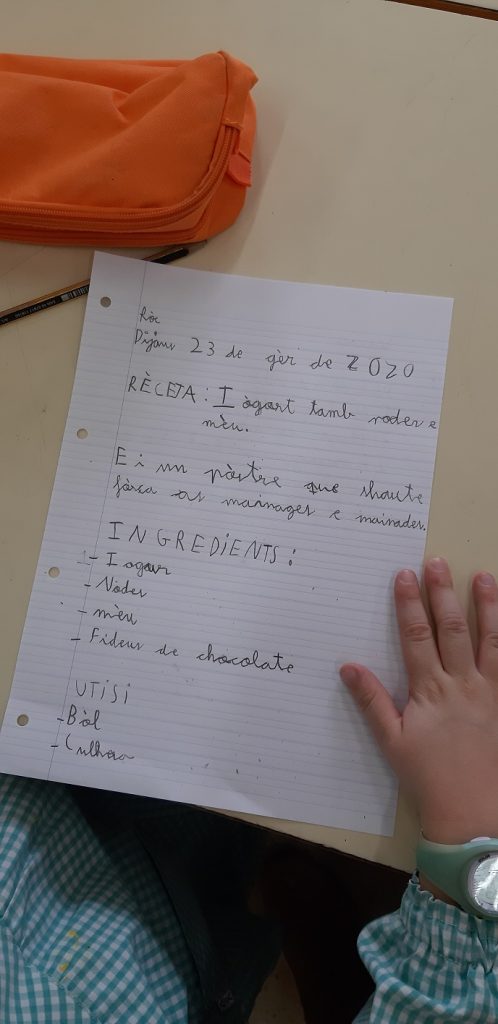 Ròc
Dijòus 23 de gèr de 2020
RÈCETA: Iògort tamb nodes e
mèu.
Ei un pòstre que shaute
fòrça as mainages e mainades.
INGREDIENTS:
- Iogur
- Nodes
- mèu
- Fideus de chocolate
UTISI
- Bòl
- Culhera